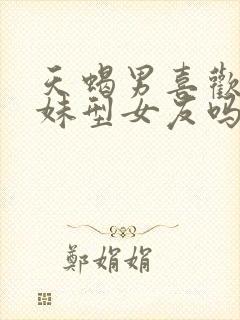 天蝎男喜歡
妹型女友吗
鄭娟娟